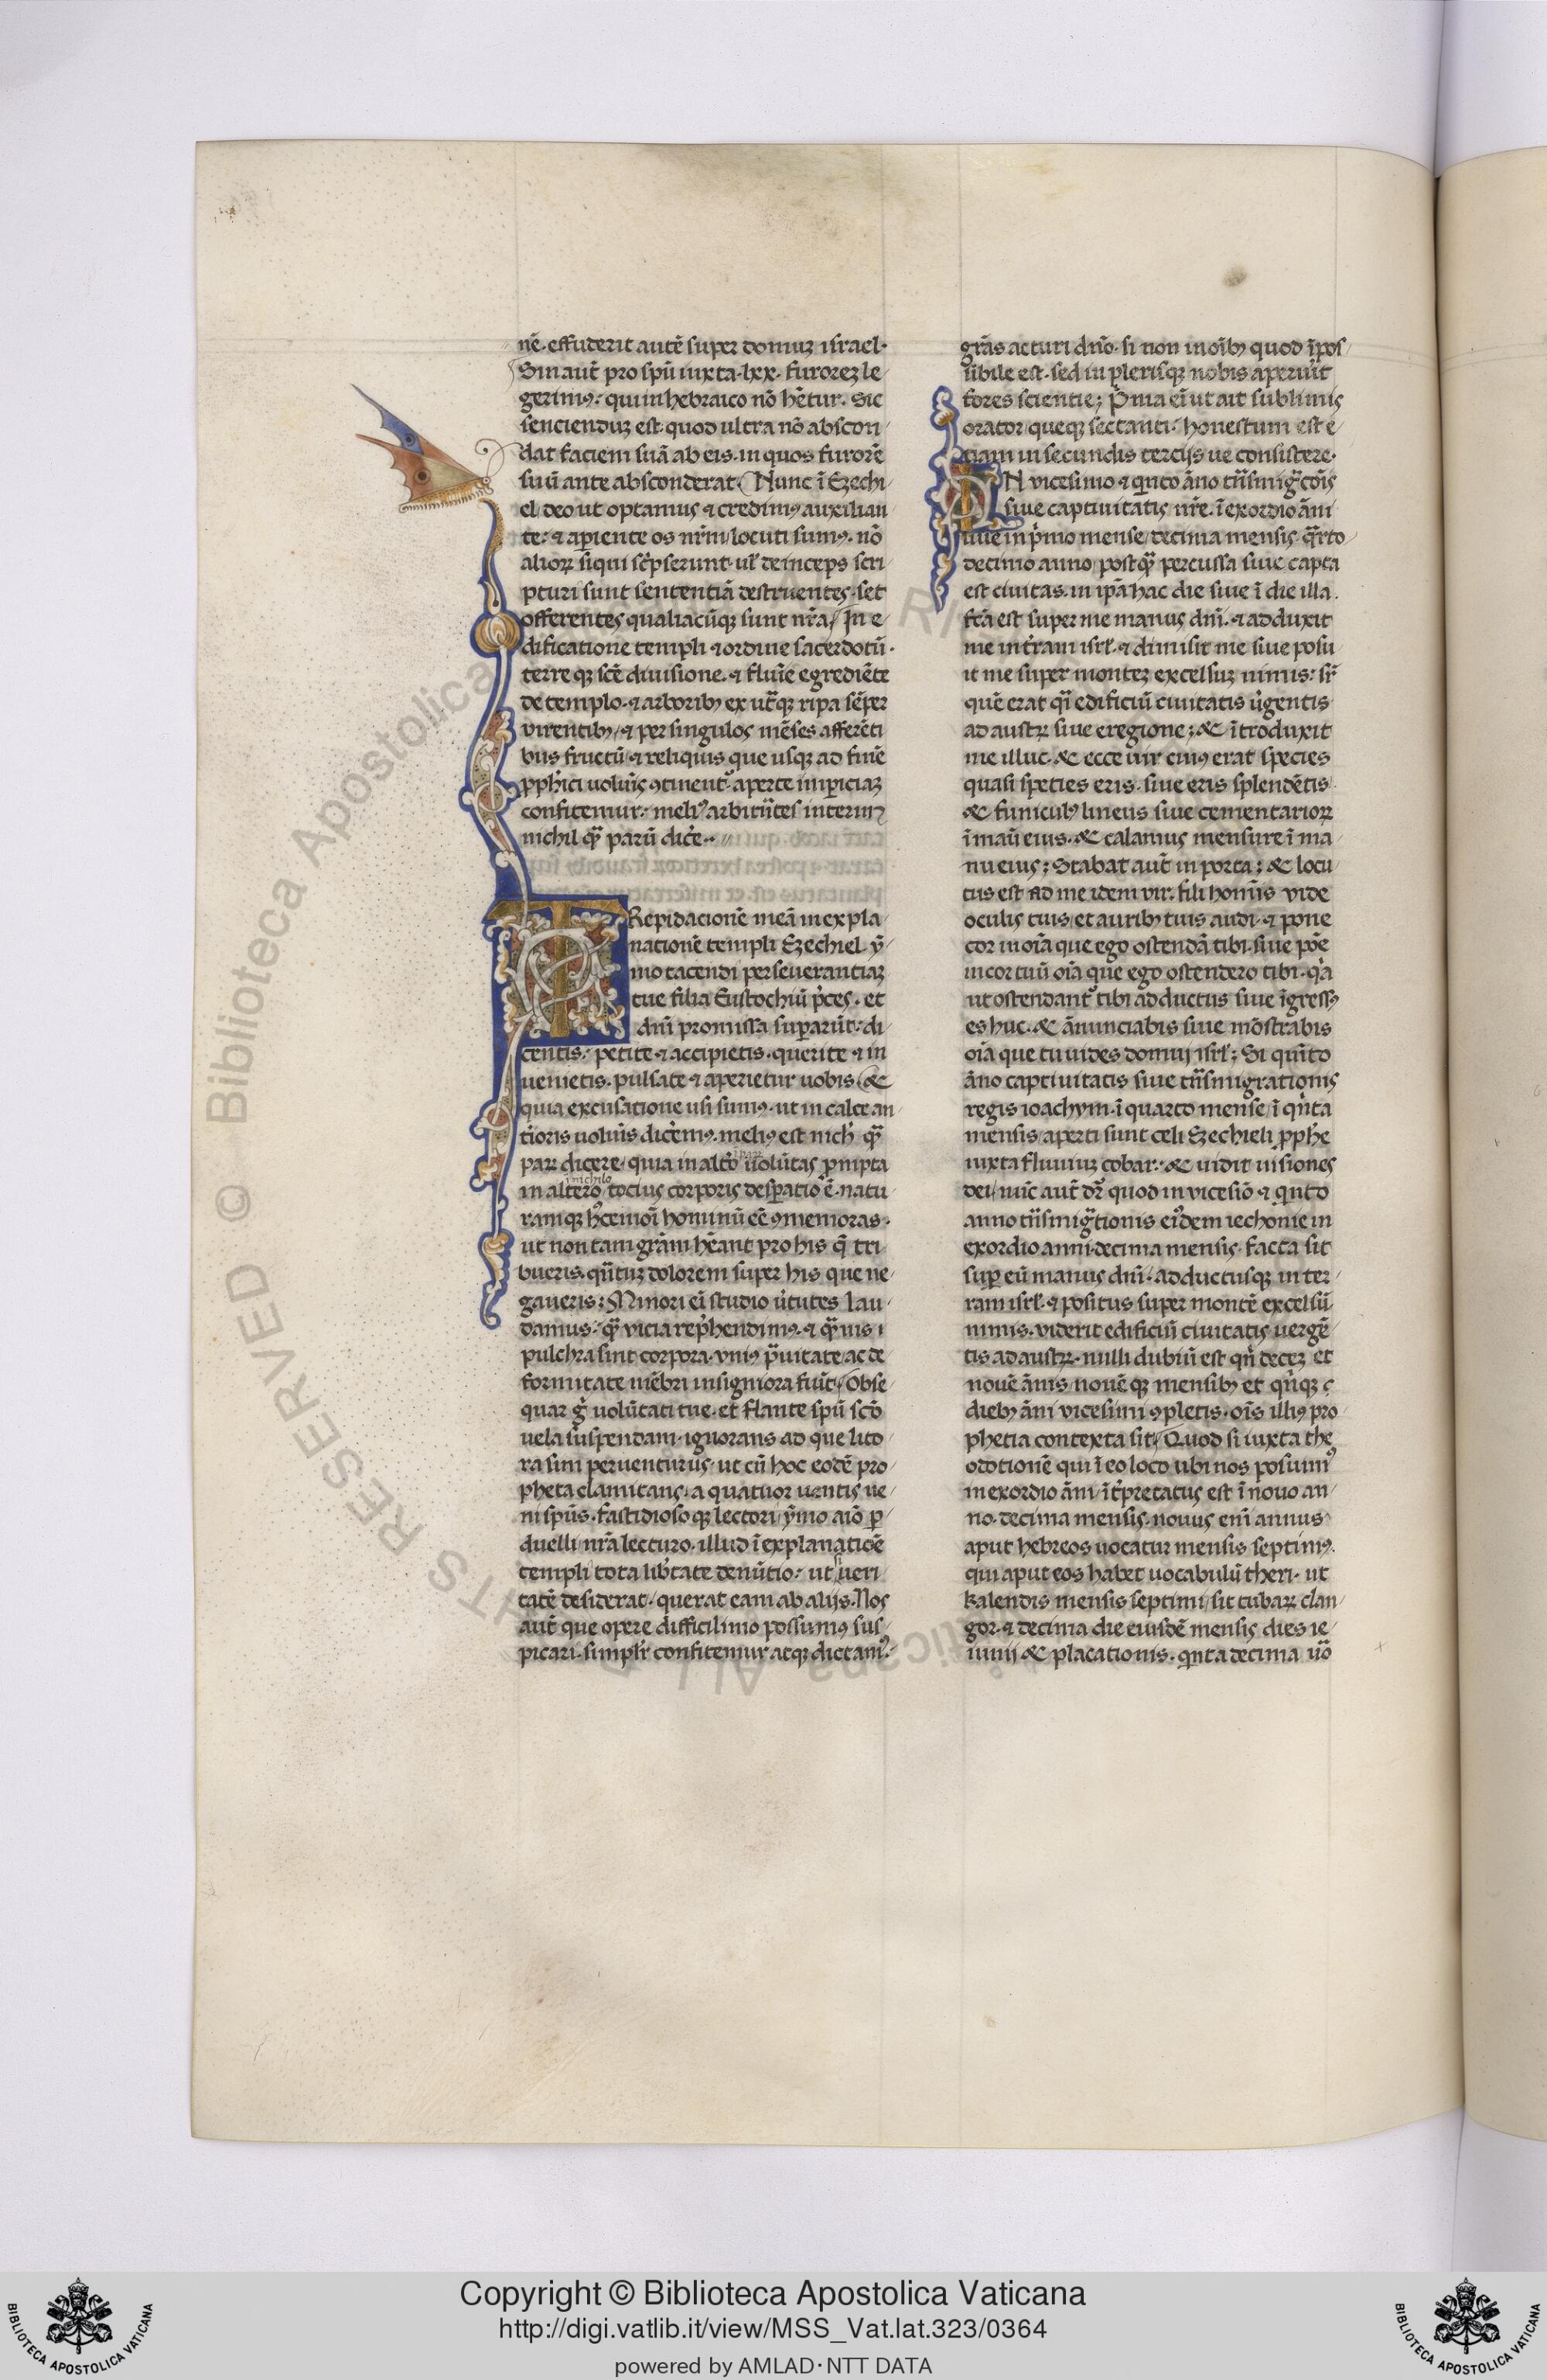 nē. effuderit autē super domuz israel.
Sin aut̄ pro spū iuxta .lxx. furorez le
gerimꝰ: qui in hebraico nō hētur. Sic
sencienduz est. quod ultra nō abscon
dat faciem suā ab eis. in quos furorē
suū ante absconderat. Nunc ī Ezechi
el deo ut optamus ⁊ credimꝰ auxilian
te: ⁊ aperiente os nr̄m locuti sumꝰ. nō
alioꝝ siqui sc̄pserunt. ul̄ deinceps scri
pturi sunt sententiā destruentes. set
offerentes qualiacūqꝫ sunt nr̄a. In e
dificatione templi ⁊ ordine sacerdotū.
terre qꝫ sc̄e diuisione. ⁊ flum̄e egrediēte
de templo. ⁊ arboribꝫ ex utᵃqꝫ ripa sēper
virentibꝫ. ⁊ per singulos mēses afferēti
bus fructū. ⁊ reliquis que usqꝫ ad finē
ꝓph̄ici uolum̄is ꝯtinent̄ aperte imꝑiciaꝫ
confitemur: meliꝰ arbitrātes interim
nichil qᵃ̄ parū dic̄e.
TRepidacionē meā in expla
nationē templi Ezechiel. ȳ
mo tacendi perseuerantiaꝫ
tue filia Eustochiū p̄ces. et
dn̄i promissa suꝑarūt: di
centis: petite ⁊ accipietis. querite ⁊ in
uenietis. pulsate ⁊ aperietur uobis. &
quia excusatione usi sumꝰ. ut in calce an
t̄ioris uolum̄is dic̄emꝰ. meliꝰ est nich̄ qᵃ̄
paꝝ dicere. quia in alt̄o uolūtas ꝓmpta
nichilo
in altero tocius corporis desꝑatio ē. natu
ramqꝫ hᶜ cemoī hominū eē ꝯmemoras.
ut non tam grām hēant pro his q̄ tri
bueris. qᵃntuꝫ dolorem super his que ne
gaueris: Minori ei studio ūtutes lau
damus: qᵃ̄ vicia rep̄hendimꝰ. ⁊ qᵃ̄uis
pulchra sint corpora. vniꝰ pᵃuitate ac de
formitate mēbri insigniora fiūt. Obse
quar ḡ uolūtati tue. et flante spū scō
uela suspendam. ignorans ad que lito
ra sim peruenturus. ut cū hoc eodē pro
pheta clamitans. a quatuor uentis ue
ni spūs. fastidiosoqꝫ lectori ȳmo aīo ꝑ
duelli nr̄a lecturo. illud ī explanatiōe
templi tota lib̄tate denūtio: ut si ueri
tatē desiderat. querat eam ab aliis. Nos
aut̄ que opere difficilimo possumꝰ sus
picari. simpl̄r confitemur atqꝫ dictamꝰ.
grās acturi dn̄o. si non in oībꝫ quod īpos
sibile est. sed in plerisqꝫ nobis aperuit
fores scientie; P̄ma ei ut ait sublimis
orator queqꝫ sectanti: honestum est e
ciam in secundis terciis ue consistere.
IN vicesimo ⁊ qⁱnto āno trāsmigᵃtōis
siue captiuitatis nr̄e. ī exordio āni
siue in p̄mo mense decima mensis qᵃrto
decimo anno postqᵃ̄ percussa siue capta
est ciuitas. in ip̄a hac die siue ī die illa.
fc̄a est super me manus dn̄i. ⁊ adduxit
me in t̄ram isrl̄. ⁊ dimisit me siue posu
it me super montez excelsuz nimis: sr̄
quē erat qᵃi edificiū ciuitatis ūgentis
ad austꝝ siue e regione: & ītroduxit
me illuc. & ecce uir cuiꝰ erat species
quasi species eris. siue eris splendētis.
& funiculꝰ lineus siue cementarioꝝ
ī manu eius. & calamus mensure ī ma
nu eius: Stabat aut̄ in porta: & locu
tus est ad me idem vir. fili homīs vide
oculis tuis et auribꝫ tuis audi. ⁊ pone
cor in oīa que ego ostendā tibi. siue pōe
in cor tuū oīa que ego ostendero tibi. qⁱa
ut ostendant̄ tibi adductus siue īgressꝰ
es huc. & ānunciabis siue mōstrabis
oīa que tu uides domui isrl̄; Si quīto
āno captiuitatis siue trāsmigrationis
regis ioachym. ī quarto mense ī qⁱnta
mensis aperti sunt celi Ezechieli ꝓph̄e
iuxta fluuiuꝫ cobar: & uidit uisiones
dei. nūc aut̄ dr̄ quod in vicesiō ⁊ qⁱnto
anno trāsmigᵃtionis eiꝰdem iechonie in
exordio anni decima mensis. facta sit
suꝑ eū manus dn̄i. adductusqꝫ in ter
ram isrl̄. ⁊ positus super montē excelsū
nimis. viderit edificiū ciuitatis uergē
tis ad austꝝ. nulli dubiū est qn̄ decez et
nouē ānis nouē qꝫ mensibꝫ et qⁱnqꝫ
diebꝫ āni vicesimi ꝯpletis. oīs illiꝰ pro
phetia contexta sit. Quod si iuxta the
odotionē qui ī eo loco ubi nos posuimꝰ
in exordio āni ī̄t̄pretatus est ī nouo an
no. decima mensis. nouus eni annus
aput hebreos uocatur mensis septimꝰ.
qui aput eos habet uocabulū theri. ut
kalendis mensis septimi sit tubaꝝ clan
gor. ⁊ decima die eiusdē mensis dies ie
iunii & placationis. qⁱnta decima ūo
Copyright © Biblioteca Apostolica Vaticana
http://digi.vatlib.it/view/MSS_Vat.lat.323/0364
powered by AMLAD·NTT DATA
BIBLIOTECA APOSTOLICA VATICANA
BIBLIOTECA APOSTOLICA VATICANA